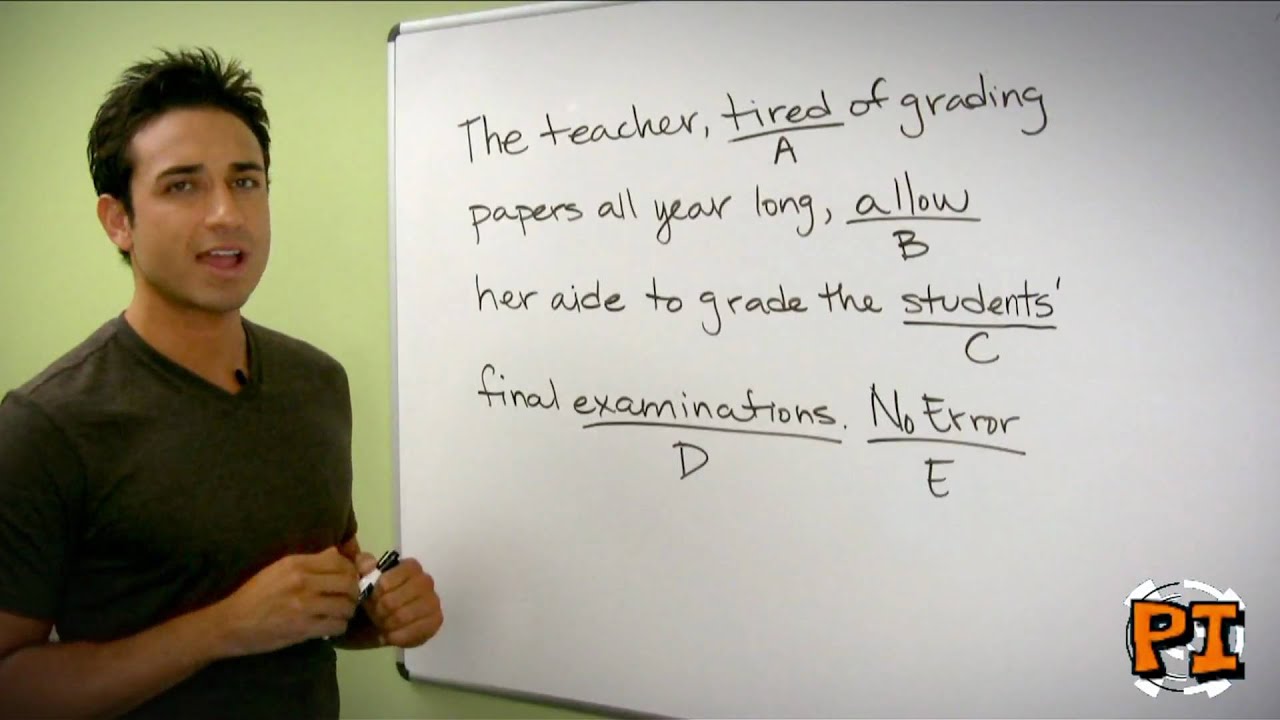 The teacher, tired of grading
A
papers all year long, allow
B
her aide to grade the students'
C
final examinations. No Error
D E
PI